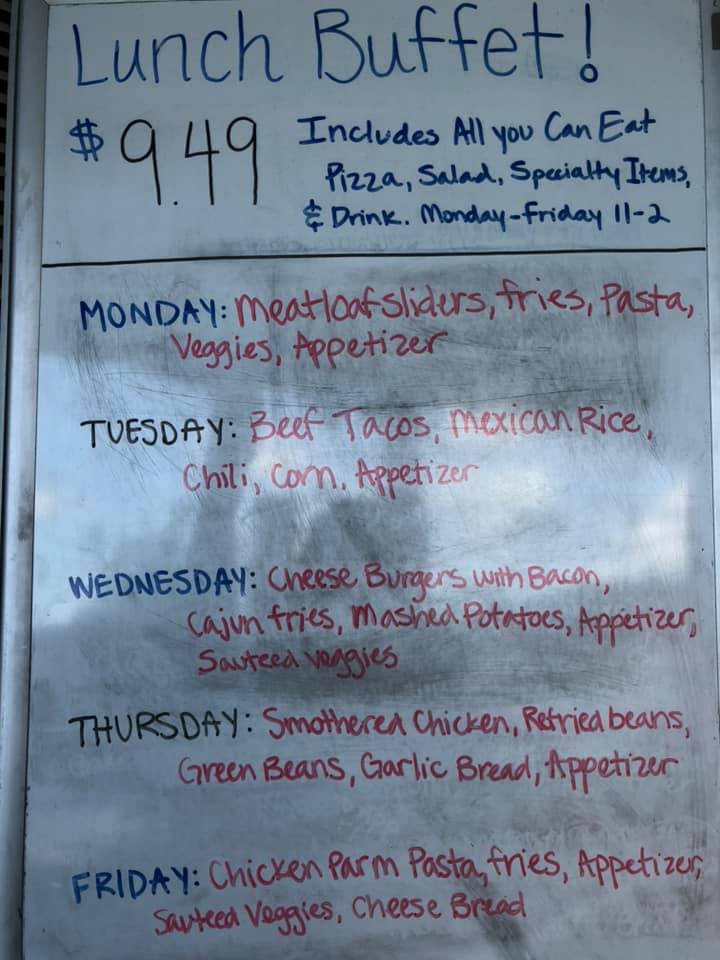 Lunch Buffet!
$9.49 Includes All you Can Eat
Pizza, Salad, Specialty Items,
& Drink. Monday-Friday 11-2
MONDAY: Meatloaf Sliders, fries, Pasta,
Veggies, Appetizer
TUESDAY: Beef Tacos, Mexican Rice,
Chili, Corn, Appetizer
WEDNESDAY: Cheese Burgers with Bacon,
Cajun fries, Mashed Potatoes, Appetizer,
Sauteed veggies
THURSDAY: Smothered Chicken, Refried beans,
Green Beans, Garlic Bread, Appetizer
FRIDAY: Chicken Parm Pasta, fries, Appetizer,
Sauteed Veggies, Cheese Bread